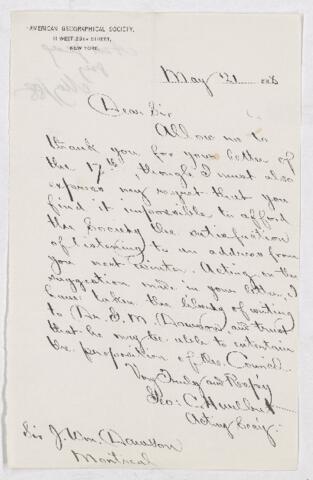 AMERICAN GEOGRAPHICAL SOCIETY,
11 WEST 29TH STREET,
NEW YORK.
May 21
Dear Sir
Allow me to
thank you for your letter of
the 17th, though I must also
express my regret that you
find it impossible to afford
the Society the satisfaction
of listening to an address from
you next winter. Acting on the
suggestion made in your letter, I
have taken the liberty of writing
to Dr. G. M. Dawson and trust
that he may be able to entertain
the proposition of the Council.
Very Truly and Respy
Geo: C. Hurlbut
Acting Secy.
Sir J. Wm. Dawson
Montreal